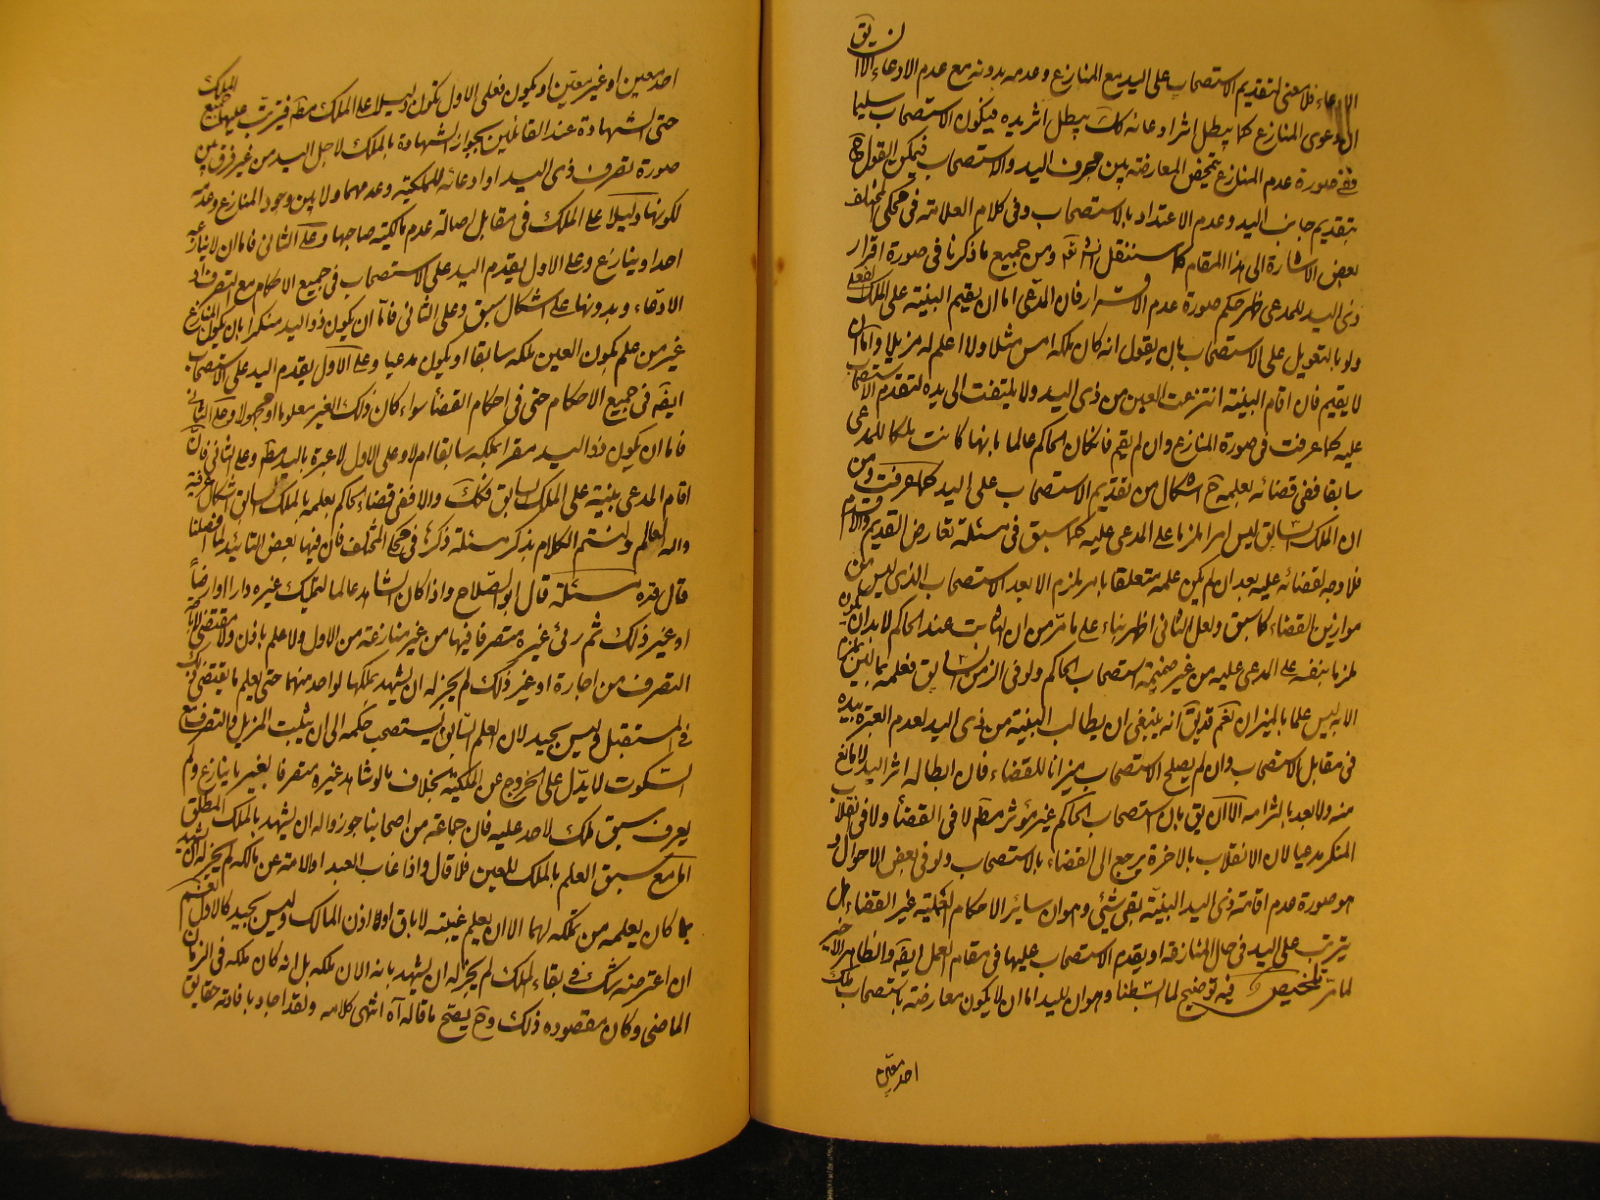 الادعاء فلا معنى لتقديم الاستصحاب على اليد مع المنازع وعدمه بدونه مع عدم الادعاء الا ان يق
ان دعوى المنازع كما يبطل اثر ادعائه كك يبطل اثر يده فيكون الاستصحاب سليما
ففى صورة عدم المنازع يتمحض المعارضة بين صرف اليد والاستصحاب فيمكن القول ح
بتقديم جانب اليد وعدم الاعتداد بالاستصحاب وفى كلام العلامة فى محكى المختلف
بعض الاشارة الى هذا المقام كما سننقل انشاء الله ومن جميع ما ذكرنا فى صورة اقرار
ذى اليد للمدعى ظهر حكم صورة عدم الاقرار فان المدعى اما ان يقيم البينة على الملك الفعلى
ولو بالتعويل على الاستصحاب بان يقول انه كان ملكه امس مثلا ولا اعلم له مزيلا واما ان
لا يقيم فان اقام البينة انتزعت العين من ذى اليد ولا يلتفت الى يده لتقدم الاستصحاب
عليه كما عرفت فى صورة المنازع وان لم يقم فان كان الحاكم عالما بانها كانت ملكا للمدعى
سابقا ففى قضائه بعلمه ح اشكال من تقديم الاستصحاب على اليد كما عرفت ومن
ان الملك السابق ليس امرا ملزما على المدعى عليه كما سبق فى مسئلة تعارض القديم والاقدم
فلا وجه لقضائه عليه بعد ان لم يكن علمه متعلقا بامر ملزم الا بعد الاستصحاب الذى ليس من
موازين القضاء كما سبق ولعل الثانى اظهر بناء على ما مر من ان الثابت عند الحاكم لابد ان يكون
ملزما بنفسه على المدعى عليه من غير ضميمة استصحاب الحاكم ولو فى الزمن السابق فعلمه بما ليس ملزما
الا به ليس علما بالميزان نعم قد يق انه ينبغى ان يطالب البينة من ذى اليد لعدم العبرة بيده
فى مقابل الاستصحاب وان لم يصلح الاستصحاب ميزانا للقضاء فان ابطاله اثر اليد لا مانع
منه ولا بعد بالتزامه الا ان يق بان استصحاب الحاكم غير مؤثر مطم لا فى القضاء ولا فى انقلاب
المنكر مدعيا لان الانقلاب بالاخرة يرجع الى القضاء بالاستصحاب ولو فى بعض الاحوال و
هو صورة عدم اقامة ذى اليد البينة بقى شئ وهو ان سائر الاحكام العملية غير القضاء هل
يترتب على اليد فى حال المنازعة او يقدم الاستصحاب عليها فى مقام العمل ايضه والظاهر الاخير
لما مر تلخيص فيه توضيح لما اسلفنا وهو ان لليد اما ان لا يكون معارضة باستصحاب ملك
احد معين
احد معين او غير معين او يكون فعلى الاول تكون دليلا على الملك مطم فيترتب عليها جميع الملك
حتى الشهادة عند القائلين بجواز الشهادة بالملك لاجل اليد من غير فرق بين
صورة تصرف ذى اليد او ادعائه للملكية وعدمهما ولا بين وجود المنازع وعدمه
لكونها دليلا على الملك فى مقابل اصالة عدم مالكية صاحبها وعلى الثانى فاما ان لا ينازعه
احد او ينازع وعلى الاول يقدم اليد على الاستصحاب فى جميع الاحكام مع التصرف او
الادعاء وبدونها على اشكال سبق وعلى الثانى فاما ان يكون ذو اليد منكرا بان يكون المنازع
غير من علم بكون العين ملكه سابقا او يكون مدعيا وعلى الاول يقدم اليد على الاستصحاب
ايضه فى جميع الاحكام حتى فى احكام القضاء سواء كان ذلك الغير معلوما او مجهولا وعلى الثانى
فاما ان يكون ذو اليد مقرا بملكه سابقا ام لا وعلى الاول لا عبرة باليد مطم وعلى الثانى فان
اقام المدعى بينة على الملك السابق فكك والا ففى قضاء الحاكم بعلمه بالملك السابق اشكال عرفته
والله العالم ولنختم الكلام بذكر مسئلة ذكره فى محكى المختلف فان فيها بعض التائيد لما فصلنا
قال قده مسئلة قال ابو الصلاح واذا كان الشاهد عالما بتملك غيره دارا او ارضا
او غير ذلك ثم رئى غيره متصرفا فيها من غير منازعة من الاول ولا علم باذن ولا مقتضى لاباحة
التصرف من اجارة او غير ذلك لم يجز له ان يشهد بملكها لواحد منهما حتى يعلم ما يقتضى ذلك
فى المستقبل وليس بجيد لان العلم السابق يستصحب حكمه الى ان يثبت المزيل والتصرف مع
السكوت لا يدل على الخروج عن الملكية بخلاف ما لو شاهد غيره متصرفا بغير ما ينازع ولم
يعرف سبق ملك لاحد عليه فان جماعة من اصحابنا جوزوا له ان يشهد بالملك المطلق
اما مع سبق العلم بالملك للغير فلا قال واذا غاب العبد او الامة عن مالكه لم يجز له ان يشهد
بما كان يعلمه من تملكه لهما الا ان يعلم غيبته لاباق او اذن المالك وليس بجيد كالاول نعم
ان اعترضه شك فى بقاء الملك لم يجز له ان يشهد بانه الان ملكه بل انه كان ملكه فى الزمان
الماضى وكان مقصوده ذلك وح يصح ما قاله اه انتهى كلامه ولقد اجاد بافادته حقايق